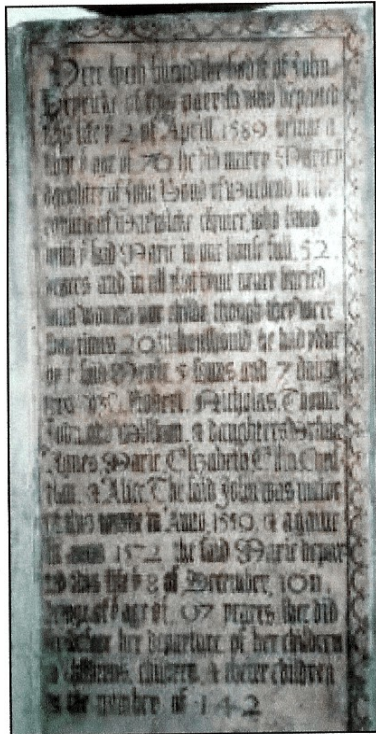 Here lyeth buried the bodie of John
of this parrish who departed
this life y 2 of Aprill 1589 being a
bout y age of 76 he did marry Marie
daughter of John Bond of Wardend in the
countie of Warwicke esquier, who lived
with y said Marie in one house full 52
yeares and in all that tyme never buried
man woman nor childe though they were
sometimes 20 in houshould he had yssue
by y said Marie 5 sonns and 7 daugh
ters viz Robert, Nicholas, Thomas
John and William, & daughters
Agnes, Marie, Elizabeth, Ellin, Chris
tian, & Alice The said John was maior
of this towne in Anno 1559 & againe
in anno 1572 the said Marie depar
ted this life y 8 of December
being of y age of 97 yeares. she did
see before her departure of her children
& childrens children & their children
to the number of 142